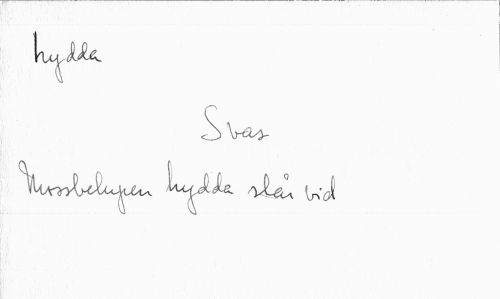 hydda
Svas
Mossbelupen hydda står vid